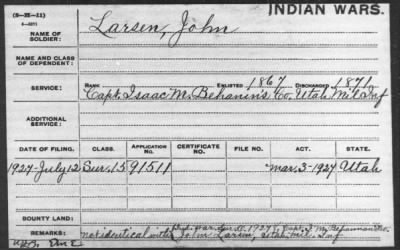 INDIAN WARS.
(3-35-11)
NAME OF SOLDIER: Larsen, John
NAME AND CLASS OF DEPENDENT:
SERVICE: RANK ENLISTED 1867 DISCHARGED 1871
Capt. Isaac M. Behanin's Co. Utah Mil. Inf
ADDITIONAL SERVICE:
DATE OF FILING. CLASS. APPLICATION NO. CERTIFICATE NO. FILE NO. ACT. STATE.
1927-July 12 Sur. 15911 Mar. 3-1927 Utah
BOUNTY LAND:
REMARKS: not identical with John Larsen, Utah, Mil. Inf